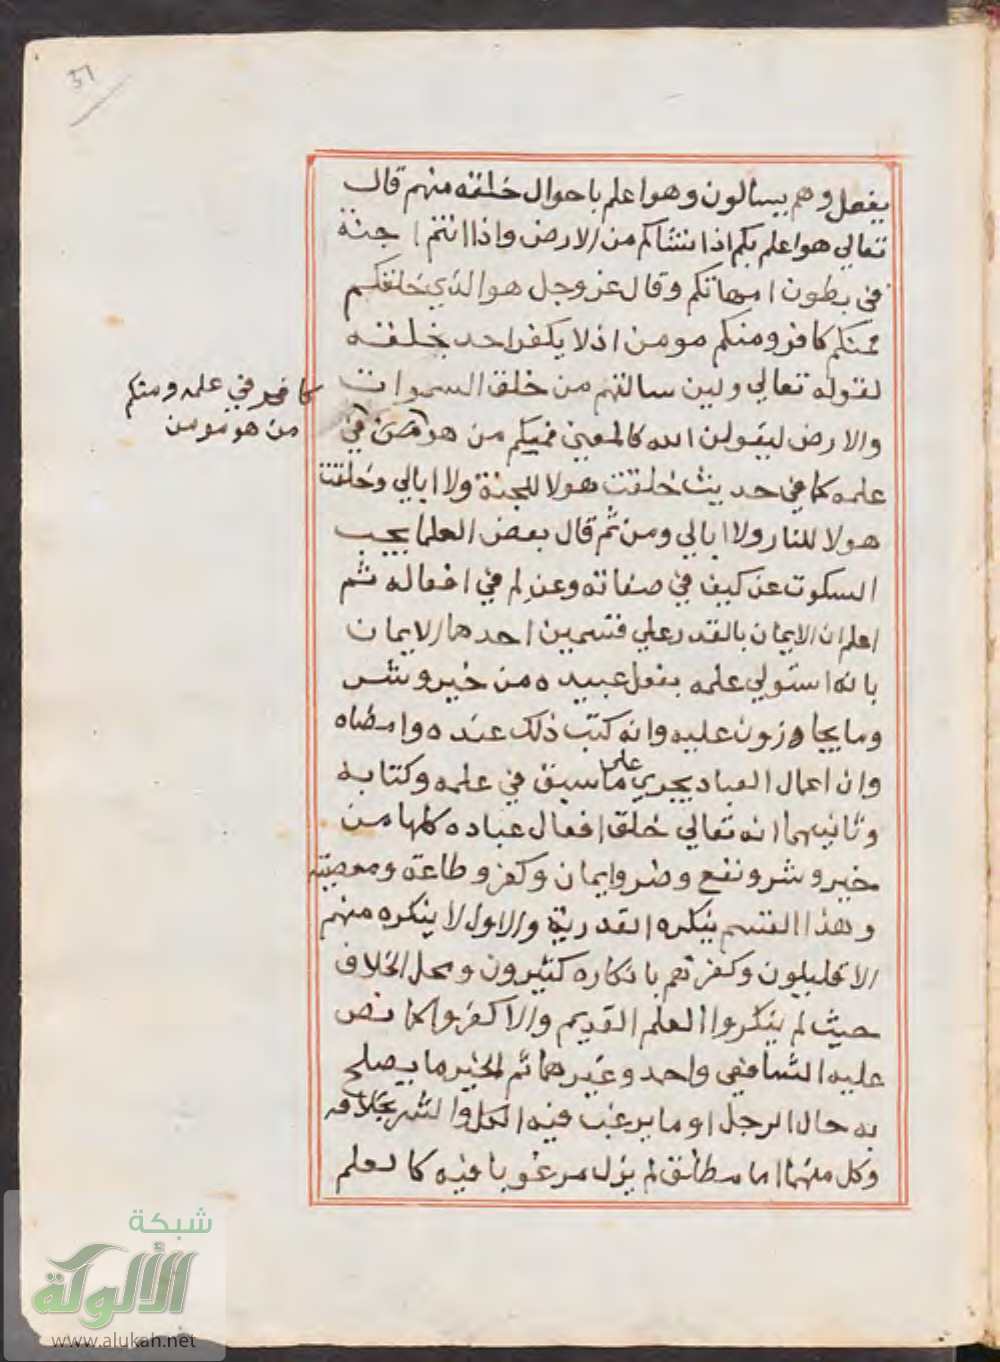 51
يفعل وهم يسالون وهو اعلم باحوال خلقه منهم قال
تعالي هو اعلم بكم اذا نشاكم من الارض واذا انتم اجنة
في بطون امهاتكم وقال عز وجل هو الذي خلقكم
فمنكم كافر ومنكم مومن اذ لا يكفر احد بخلقه
لقوله تعالي ولين سالتهم من خلق السموات
والارض ليقولن الله فالمعني فمنكم من هو في
كافر في علمه ومنكم
من هو مومن
علمه كما في حديث خلقت هولا للجنة ولا ابالي وخلقت
هولا للنار ولا ابالي ومن ثم قال بعض العلما يجب
السكوت عن كيف في صفاته وعن لم في افعاله ثم
اعلم ان الايمان بالقدر علي قسمين احدها الايمان
بانه استولي علمه بفعل عبيده من خير وشر
وما يجاوزون عليه وانه كتب ذلك عنده وامضاه
وان اعمال العباد يجري على ما سبق في علمه وكتابه
وثانيهما انه تعالي خلق افعال عباده كلها من
خير وشر ونفع وضر وايمان وكفر وطاعة ومعصية
وهذا القسم ينكره القدرية والاول لا ينكره منهم
الا قليلون وكفرتهم بانكاره كثيرون ومحل الخلاف
حيث لم ينكروا العلم القديم والا كفروا كما نص
عليه الشافعي واحمد وغيرهما ثم الخير ما يصلح
به حال الرجل او ما يرغب فيه الكل والشر بخلافه
وكل منهما اما مطلق لم يزل مرغوبا فيه كالعلم
شبكة
الألوكة
www.alukah.net